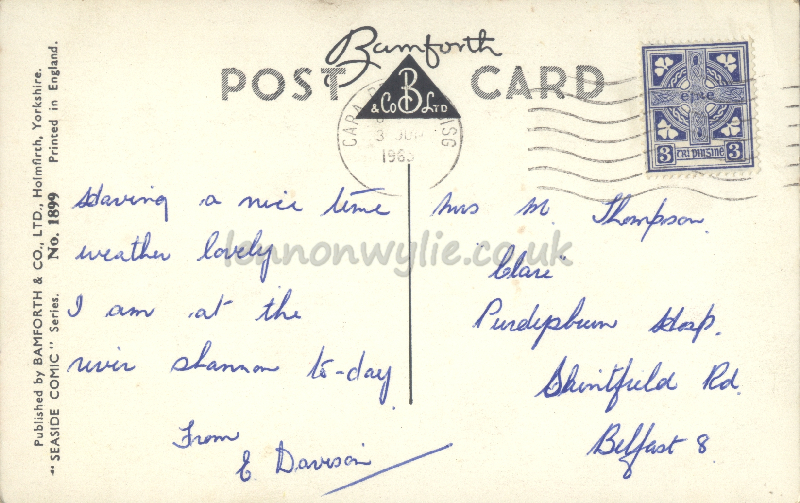 Published by BAMFORTH & CO., LTD., Holmfirth, Yorkshire.
"SEASIDE COMIC" Series. No. 1899 Printed in England.
Bamforth
POST CARD
& Co B LTD
CARA
3
1963
éire
3 TRÍ PINGINE 3
Having a nice time
weather lovely
I am at the
river shannon to-day
From
E Davison
Mrs M. Thompson.
"Clare"
Purdysburn Hosp.
Saintfield Rd.
Belfast 8.
lennonwylie.co.uk